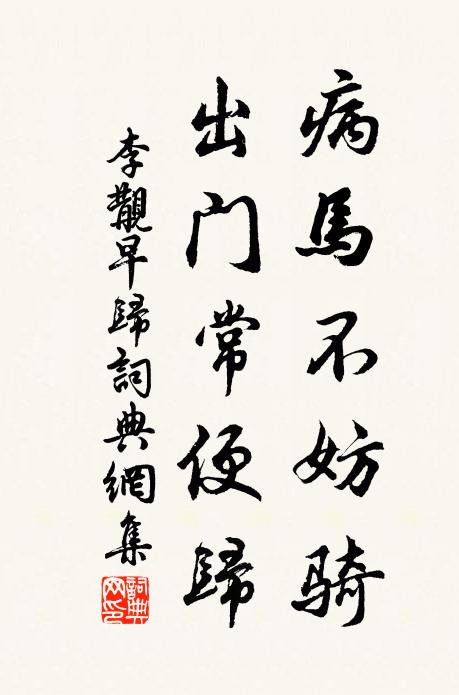 病馬不妨骑
出门常便歸
李觀早歸詞典網集
詞典网印